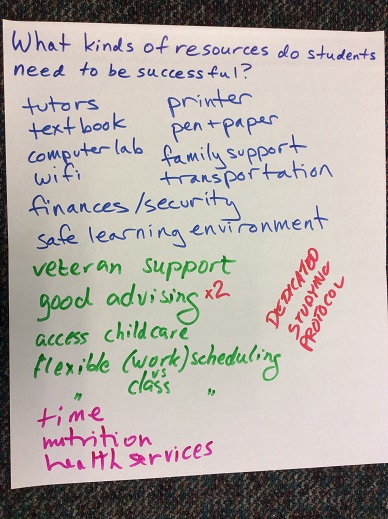 What kinds of resources do students
need to be successful?
tutors printer
textbook pen + paper
computer lab family support
wifi transportation
finances/security
safe learning environment
veteran support
good advising x2
access childcare
flexible (work) scheduling
vs
" class "
DEDICATED
STUDYING
PROTOCOL
time
nutrition
health services